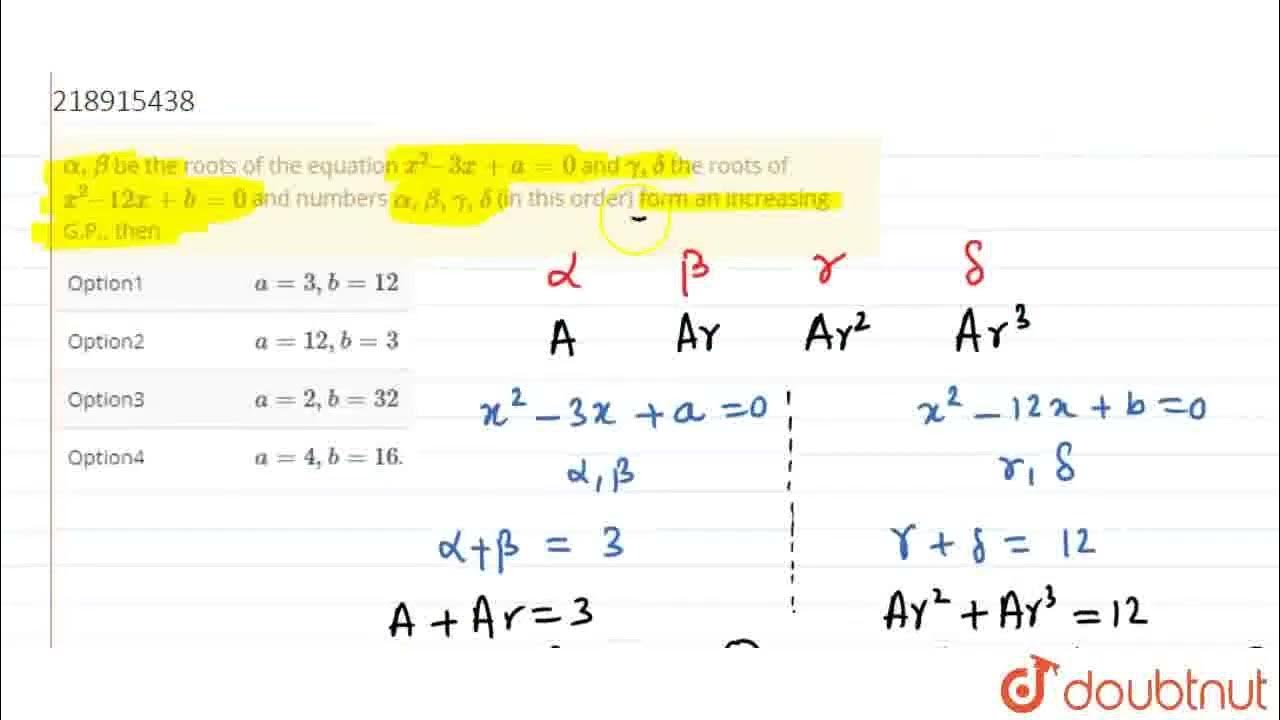 218915438
α, β be the roots of the equation x²– 3x + a = 0 and γ, δ the roots of
x²– 12x + b = 0 and numbers α, β, γ, δ (in this order) form an increasing
G.P., then
Option1 a = 3, b = 12
Option2 a = 12, b = 3
Option3 a = 2, b = 32
Option4 a = 4, b = 16.
α β γ δ
A Ar Ar² Ar³
x² – 3x + a = 0 x² – 12x + b = 0
α, β γ, δ
α + β = 3 γ + δ = 12
A + Ar = 3 Ar² + Ar³ = 12
doubtnut